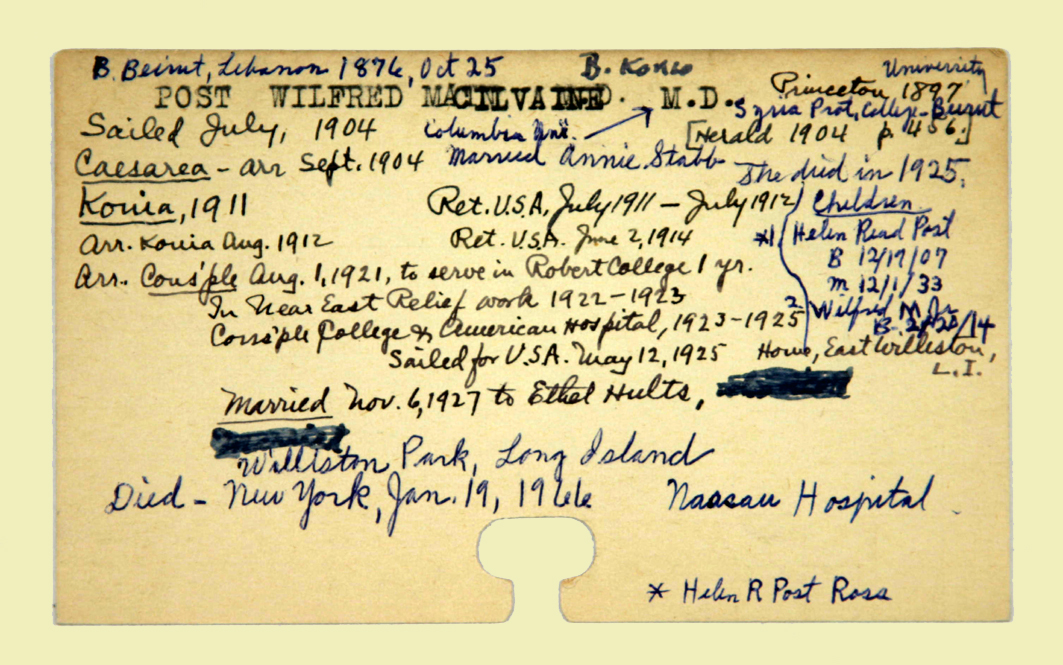 B. Beirut, Lebanon 1876, Oct 25
B. Konia
University
Princeton 1897
POST WILFRED M. M.D.
Syria Prot. College - Beirut
Sailed July, 1904
Columbia Uni.
[Herald 1904 p. 456.]
Caesarea - arr Sept. 1904
Married Annie Stabb
She died in 1925.
Konia, 1911
Ret. U.S.A, July 1911 - July 1912
Children
Arr. Konia Aug. 1912
Ret. U.S.A. June 2, 1914
*1 Helen Read Post
B 12/17/07
m 12/1/33
Arr. Cons'ple Aug. 1, 1921, to serve in Robert College 1 yr.
In Near East Relief work 1922-1923
2 Wilfred M Jr
B. /14
Cons'ple College & American Hospital, 1923-1925
Sailed for U.S.A. May 12, 1925
Home, East Williston,
L.I.
Married Nov. 6, 1927 to Ethel Hults,
Williston Park, Long Island
Died - New York, Jan. 19, 1966
Nassau Hospital
* Helen R Post Ross